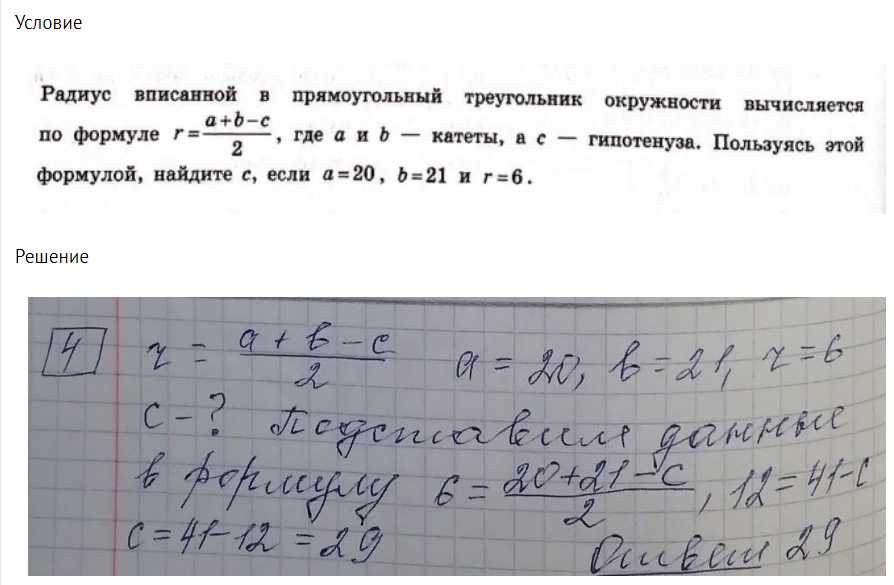 Условие
Радиус вписанной в прямоугольный треугольник окружности вычисляется
по формуле r = (a+b−c)/2, где a и b — катеты, а c — гипотенуза. Пользуясь этой
формулой, найдите c, если a=20, b=21 и r=6.
Решение
4 r = (a + b − c)/2 a = 20, b = 21, r = 6
c − ? Подставим данные
в формулу 6 = (20+21−c)/2, 12 = 41−c
c = 41−12 = 29 Ответ 29